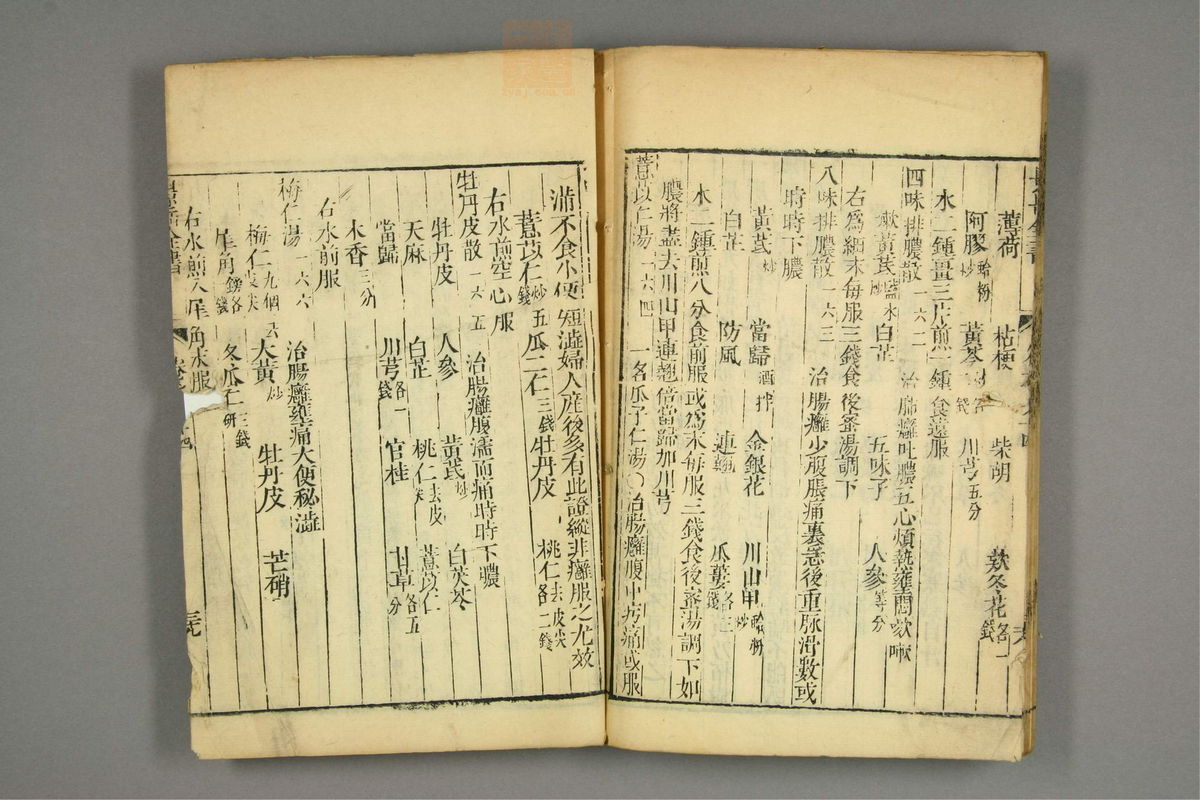 薄荷 枯梗 柴胡 欵冬花各一錢
阿膠蛤粉炒 黃芩 川芎五分
水二鍾薑三片煎一鍾食遠服
四味排膿散一六二 治肺癰吐膿五心煩熱壅悶欬嗽
嫩黃芪鹽水炒 白芷 五味子 人參等分
右爲細末每服三錢食後蜜湯調下
八味排膿散一六三 治腸癰少腹脹痛裏急後重脉滑數或
時時下膿
黃芪炒 當歸酒拌 金銀花 川山甲蛤粉炒
白芷 防風 連翹 瓜蔞各二錢
水二鍾煎八分食前服或爲末每服三錢食後蜜湯調下如
膿將盡去川山甲連翹倍當歸加川芎
薏苡仁湯一六四 一名瓜子仁湯○治腸癰腹中疠痛或脹
滿不食小便短澁婦人産後多有此證縱非癰服之尤效
薏苡仁炒五錢 瓜二仁三錢 牡丹皮 桃仁去皮尖各二錢
右水煎空心服
牡丹皮散一六五 治腸癰腹濡而痛時時下膿
牡丹皮 人參 黃芪炒 白茯苓
天麻 白芷 桃仁去皮尖 薏苡仁
當歸 川芎各一錢 官桂 甘草各五分
木香三分
右水煎服
梅仁湯一六六 治腸癰壅痛大便秘澁
梅仁九個去皮尖 大黃炒 牡丹皮 芒硝
犀角鎊各一錢 冬瓜仁研三錢
右水煎入犀角末服